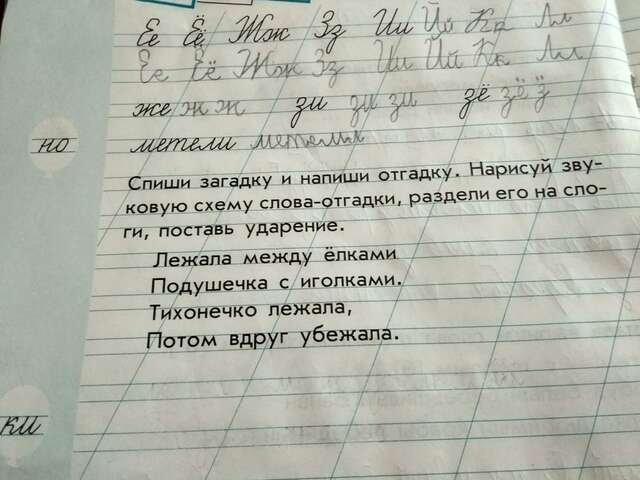 Ее Ёё Жж Зз Ии Йй Кк Лл
Ее Ёё Жж Зз Ии Йй Кк Лл
же ж ж зи зи зи зё зё ӟ
но
метели метели
Спиши загадку и напиши отгадку. Нарисуй зву-
ковую схему слова-отгадки, раздели его на сло-
ги, поставь ударение.
Лежала между ёлками
Подушечка с иголками.
Тихонечко лежала,
Потом вдруг убежала.
ки